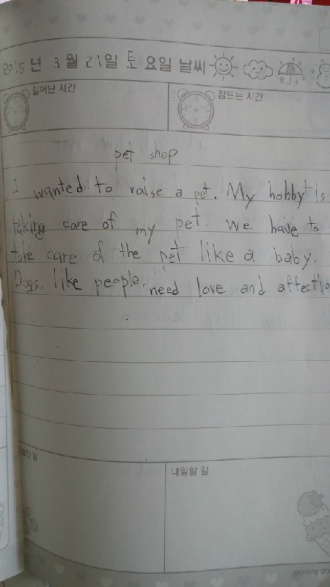 2015 년 3 월 21일 토 요일 날씨
일어난 시간
잠드는 시간
pet shop
I wanted to raise a pet. My hobby is
taking care of my pet. We have to
take care of the pet like a baby.
Dogs, like people, need love and affectio
내일할 일